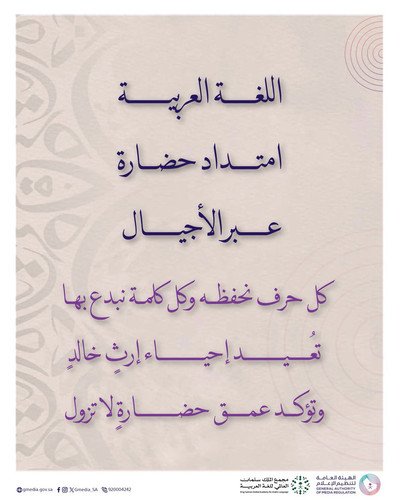 اللغة العربية
امتداد حضارة
عبر الأجيال
كل حرف نحفظه وكل كلمة نبدع بها
تُعيد إحياء إرثٍ خالدٍ
وتؤكد عمق حضارةٍ لا تزول
gmedia.gov.sa
Gmedia_SA
920004242
مجمع الملك سلمان
العالمي للغة العربية
الهيئة العامة
لتنظيم الإعلام
GENERAL AUTHORITY
OF MEDIA REGULATION